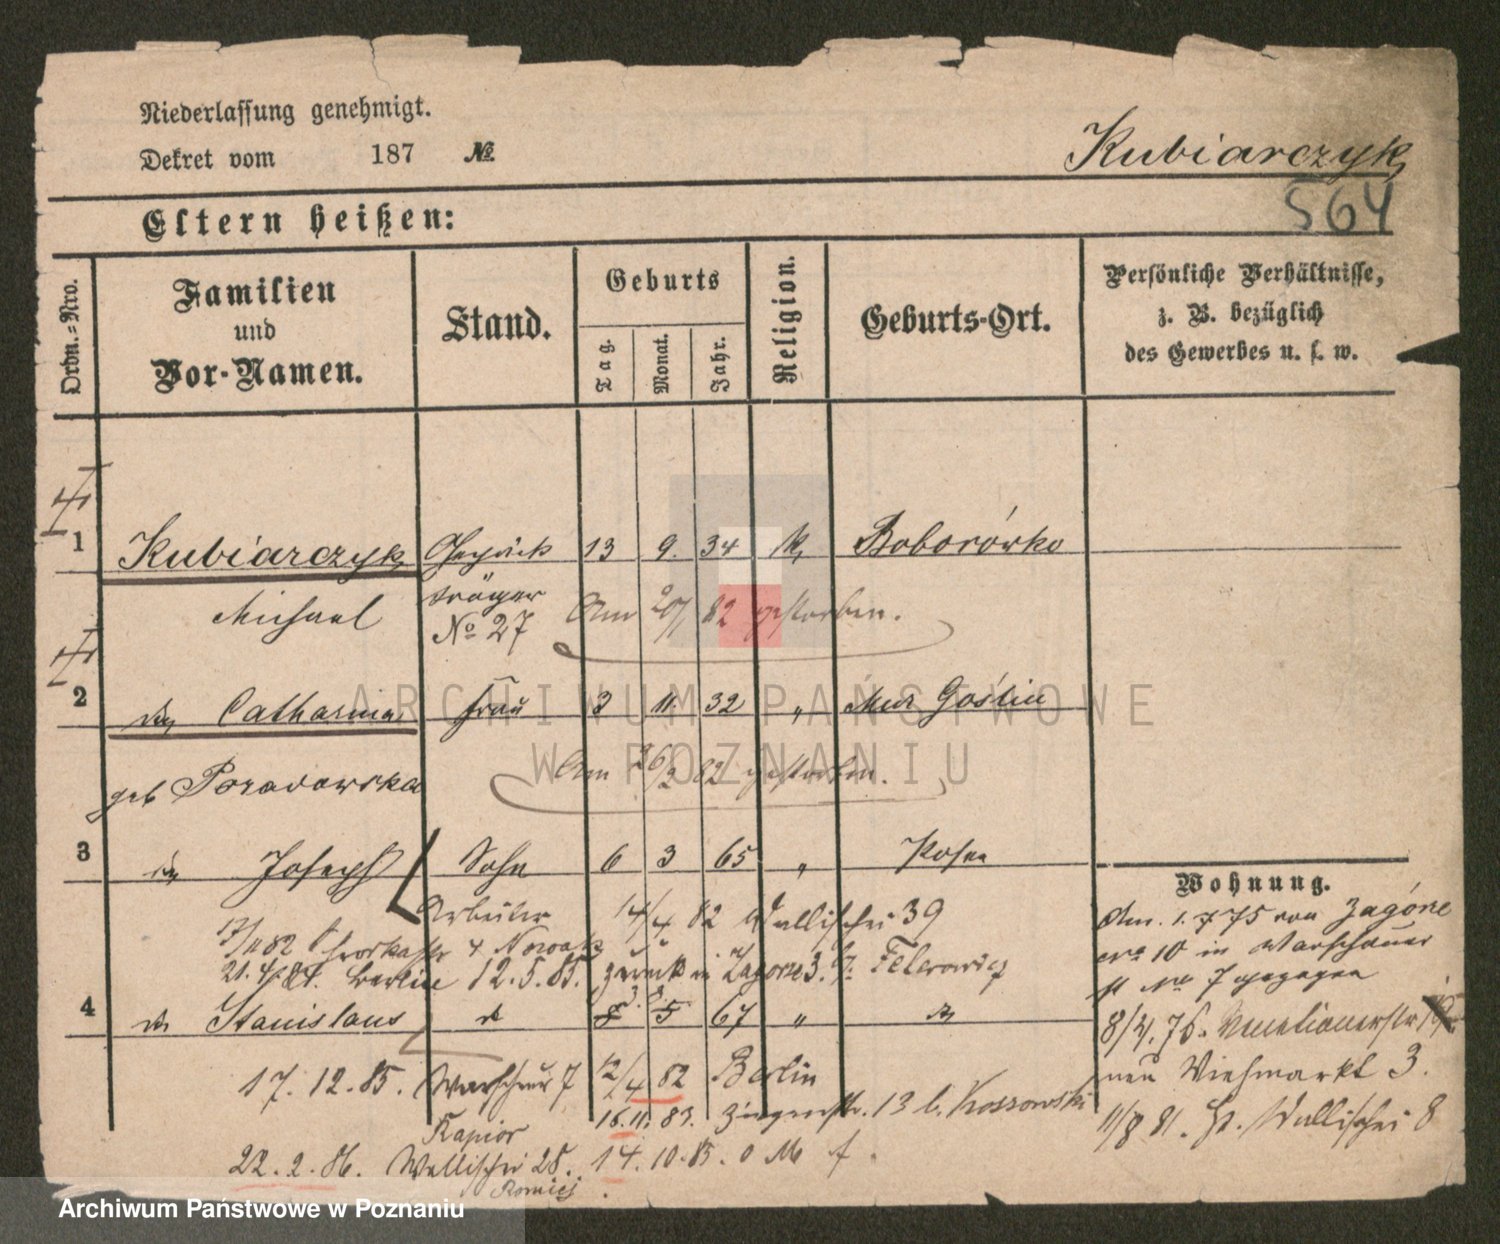 Niederlassung genehmigt.
Dekret vom 187 №
Kubiarczyk
564
Eltern heißen:
Ordn.=Nro.
Familien
und
Vor-Namen.
Stand.
Geburts
Tag.
Monat.
Jahr.
Religion.
Geburts-Ort.
Persönliche Verhältnisse,
z. B. bezüglich
des Gewerbes u. s. w.
1 Kubiarczyk Gepäck 13 9. 34 k Boborówko
Michael träger
No 27
Am 20/ 82 gestorben.
2 Catharina Frau 3 11. 32 " Mur Goślin
geb Poradowska
Am 26/2 82 gestorben.
3 Joseph Sohn 6 3 65 " Posen
Arbeiter 14/4 82 Wallischei 39
17/11 82 4 Nowak
21.4/84. Berlin 12.5.85. zurück in Zagorze 3. b/
4 Stanislaus 8 5 67 "
3. 8.
17.12.85. Warschauer 7 12/4 82 Berlin
Kapior 16.11.83. 13 b. Kossowski
22.2.86. Wallischei 28. 14.10.85. o M f.
Wohnung.
Am 1. 7 75 von Zagórze
No 10 in Warschauer
st No 7 gezogen
8/4. 76. Venetianerstr
neu Viehmarkt 3.
11/8 81. Wallischei 8
ARCHIWUM PAŃSTWOWE
W POZNANIU
Archiwum Państwowe w Poznaniu